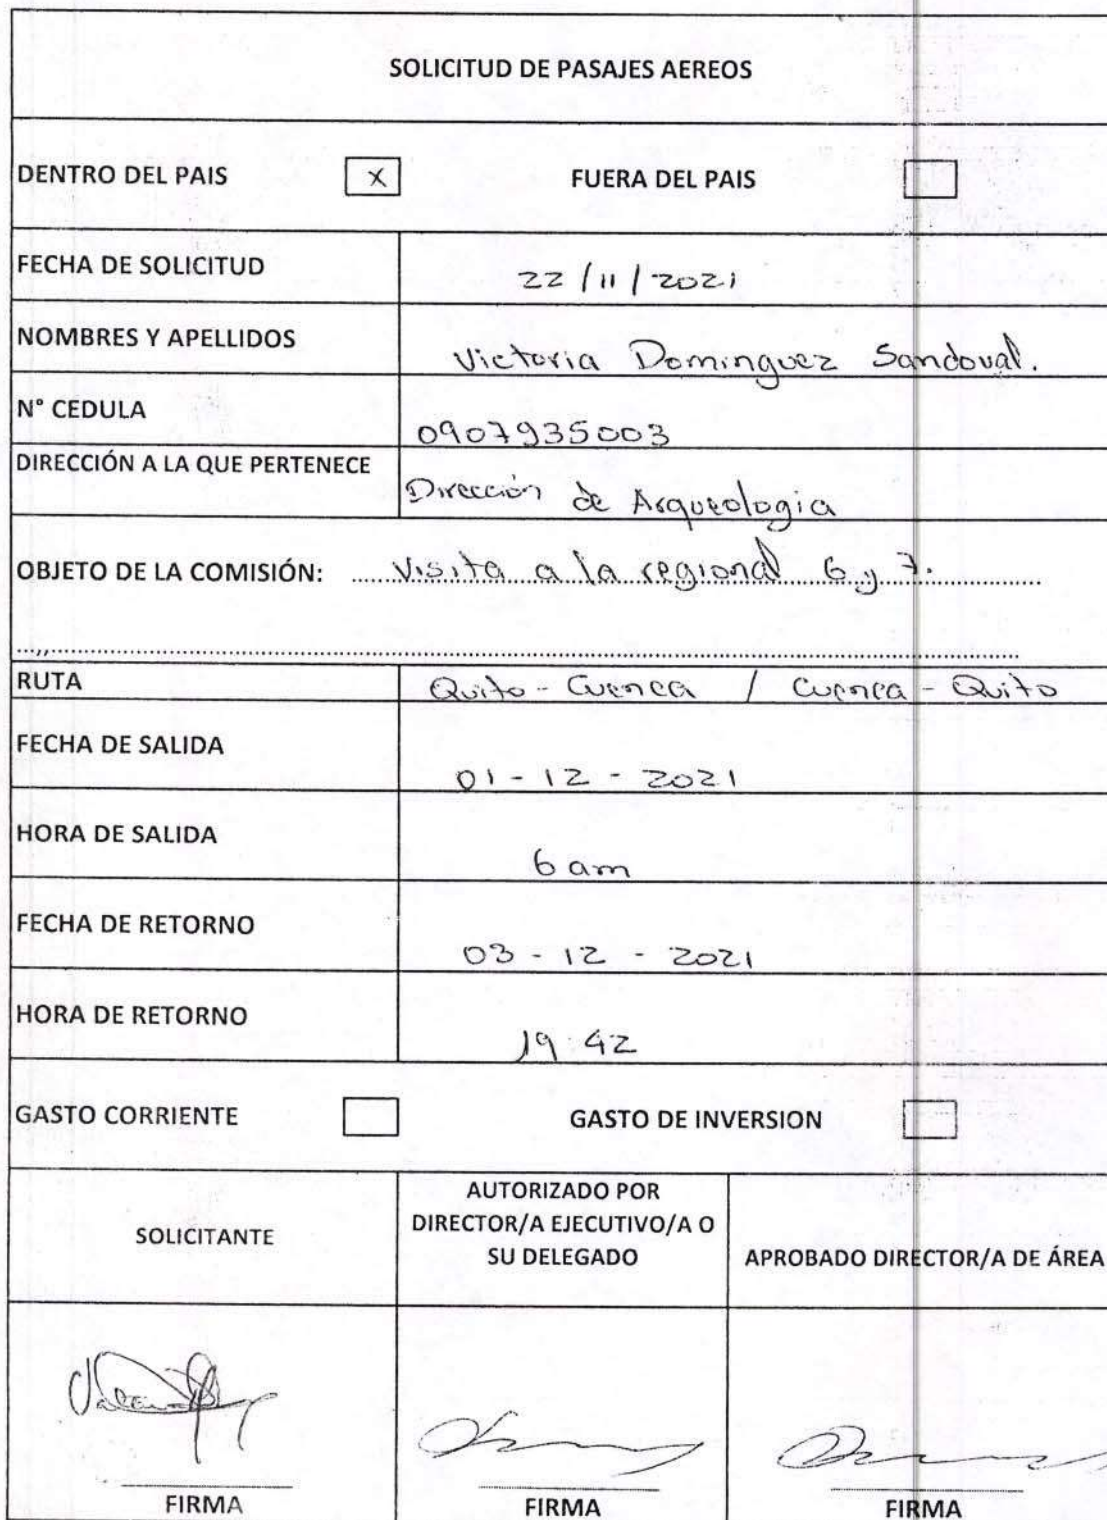 SOLICITUD DE PASAJES AEREOS
DENTRO DEL PAIS X FUERA DEL PAIS
FECHA DE SOLICITUD 22/11/2021
NOMBRES Y APELLIDOS Victoria Dominguez Sandoval.
N° CEDULA 0907935003
DIRECCIÓN A LA QUE PERTENECE Dirección de Arqueologia
OBJETO DE LA COMISIÓN: Visita a la regional 6 y 7.
RUTA Quito - Cuenca / Cuenca - Quito
FECHA DE SALIDA 01-12-2021
HORA DE SALIDA 6 am
FECHA DE RETORNO 03-12-2021
HORA DE RETORNO 19:42
GASTO CORRIENTE GASTO DE INVERSION
SOLICITANTE
AUTORIZADO POR
DIRECTOR/A EJECUTIVO/A O
SU DELEGADO
APROBADO DIRECTOR/A DE ÁREA
FIRMA FIRMA FIRMA